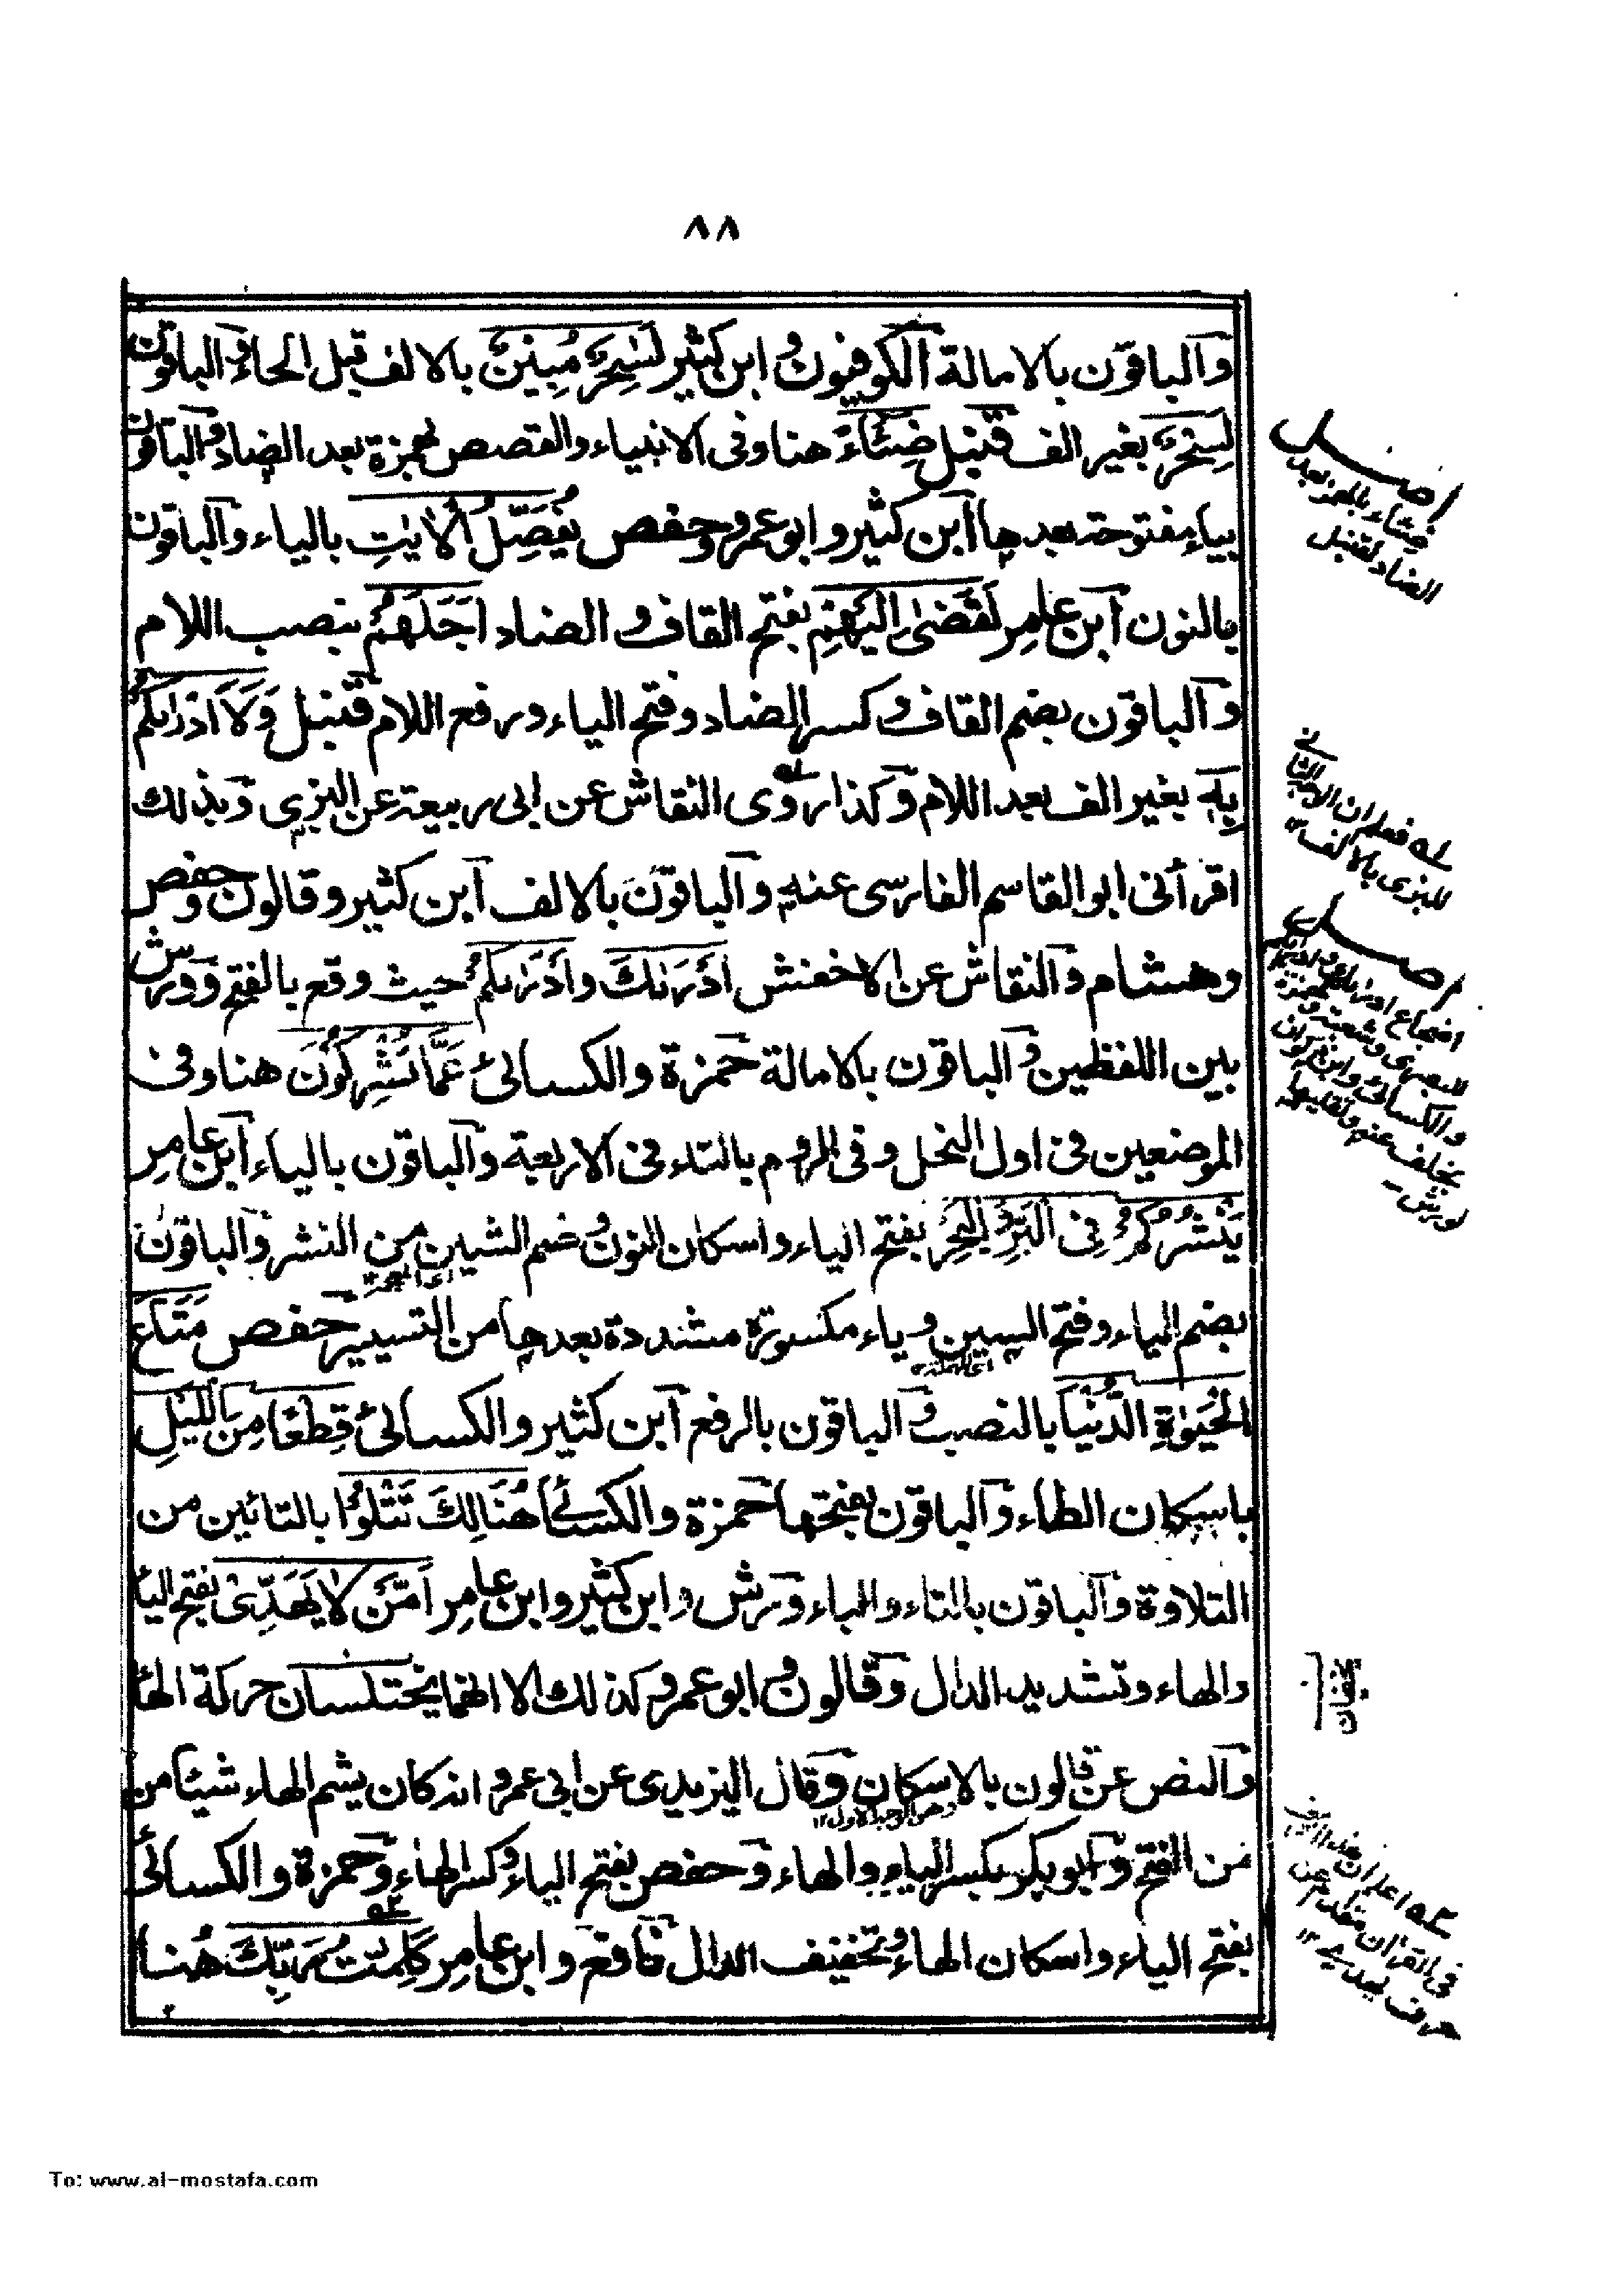 ٨٨
والباقون بالامالة الكوفيون وابن كثير لَسٰحِرٌ مُبِينٌ بالالف قبل الحاء والباقون
لَسِحْرٌ بغير الف قنبل ضِئَآءً هنا وفى الانبياء والقصص بهمزة بعد الضاد والباقون
بياء مفتوحة بعدها ابن كثير وابو عمرو وحفص يُفَصِّلُ الْاٰيٰتِ بالياء والباقون
بالنون ابن عامر لَقَضٰى اِلَيْهِمْ بفتح القاف والضاد اَجَلَهُمْ بنصب اللام
والباقون بضم القاف وكسر الضاد وفتح الياء ورفع اللام قنبل وَلَاَدْرٰىكُمْ
بِهٖ بغير الف بعد اللام وكذا روى النقاش عن ابى ربيعة عن البزى وبذلك
اقرأنى ابو القاسم الفارسى عنه والباقون بالالف ابن كثير وقالون وحفص
وهشام والنقاش عن الاخفش اَدْرٰىكَ وادرٰىكم حيث وقع بالفتح وورش
بين اللفظين والباقون بالامالة حمزة والكسائى عَمَّا تُشْرِكُوْنَ هنا وفى
الموضعين فى اول النحل وفى الروم بالتاء فى الاربعة والباقون بالياء ابن عامر
يَنْشُرُكُمْ فِى الْبَرِّ وَالْبَحْرِ بفتح الياء واسكان النون وضم الشين من النشر والباقون
بضم الياء وفتح السين وياء مكسورة مشددة بعدها من التسيير حفص مَتَاعَ
الْحَيٰوةِ الدُّنْيَا بالنصب والباقون بالرفع ابن كثير والكسائى قِطْعًا مِنَ اللَّيْلِ
باسكان الطاء والباقون بفتحها حمزة والكسائى هُنَالِكَ تَتْلُوْا بالتائين من
التلاوة والباقون بالتاء والباء وورش وابن كثير وابن عامر اَمَّنْ لَا يَهَدِّىْ بفتح اليا
والهاء وتشديد الدال وقالون وابو عمرو كذلك الا انهما يختلسان حركة الها
والنص عن قالون بالاسكان وقال اليزيدى عن ابى عمرو انه كان يشم الهاء شيئا من
من الفتح وابو بكر بكسر الياء والهاء وحفص بفتح الياء وكسر الهاء وحمزة والكسائى
بفتح الياء واسكان الهاء وتخفيف الدال نافع وابن عامر كَلِمٰتُ رَبِّكَ هُنا
اصل
ضئاء بالهمز بعد
الضاد لقنبل
للبزى بالالف
اصل
والكسائى وابن ذكوان
بخلف عنه وتقليلها
لورش
يخفيان
To: www.al-mostafa.com